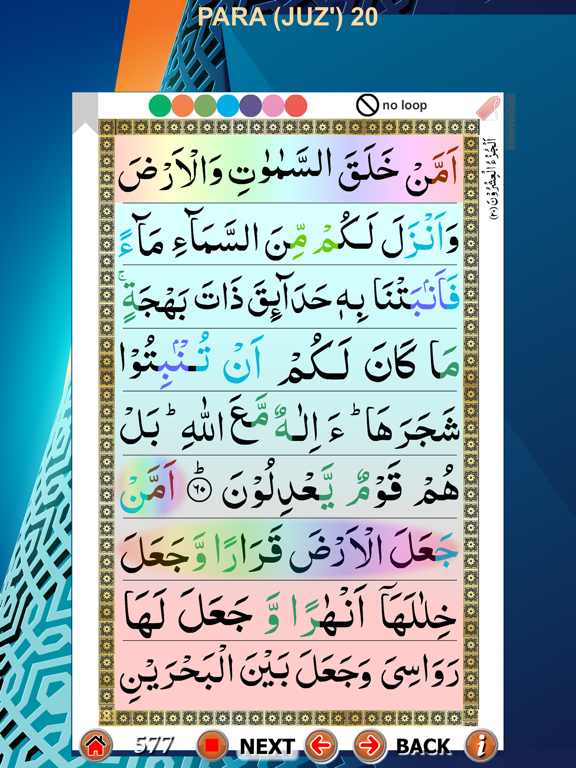 PARA (JUZ') 20
no loop
BOOKMARKS
اَلْجُزْءُ الْعِشْرُوْنَ (٢٠)
اَمَّنْ خَلَقَ السَّمٰوٰتِ وَالْاَرْضَ
وَاَنْزَلَ لَكُمْ مِّنَ السَّمَآءِ مَآءً
فَاَنْۢبَتْنَا بِهٖ حَدَآئِقَ ذَاتَ بَهْجَةٍ ۚ
مَا كَانَ لَكُمْ اَنْ تُنْۢبِتُوْا
شَجَرَهَا ؕ ءَ اِلٰهٌ مَّعَ اللّٰهِ ؕ بَلْ
هُمْ قَوْمٌ يَّعْدِلُوْنَ ؕ ٦٠ اَمَّنْ
جَعَلَ الْاَرْضَ قَرَارًا وَّجَعَلَ
خِلٰلَهَاۤ اَنْهٰرًا وَّ جَعَلَ لَهَا
رَوَاسِىَ وَجَعَلَ بَيْنَ الْبَحْرَيْنِ
577 NEXT BACK i